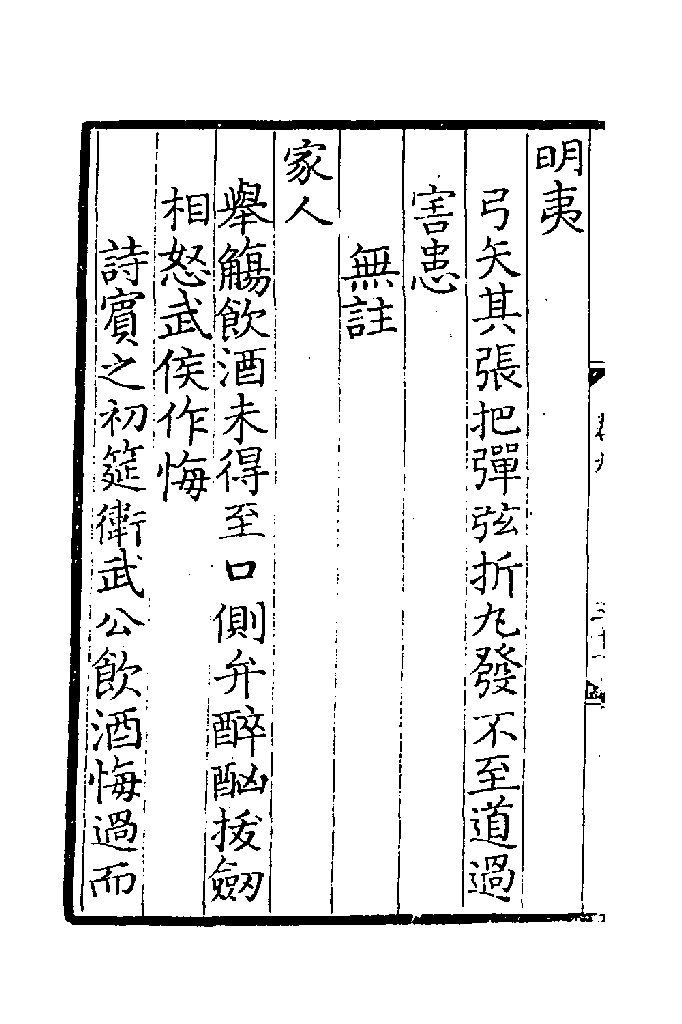 明夷
弓矢其張把彈弦折丸發不至道過
害患
無註
家人
舉觴飲酒未得至口側弁醉酗拔劒
相怒武侯作悔
詩賓之初筵衛武公飲酒悔過而